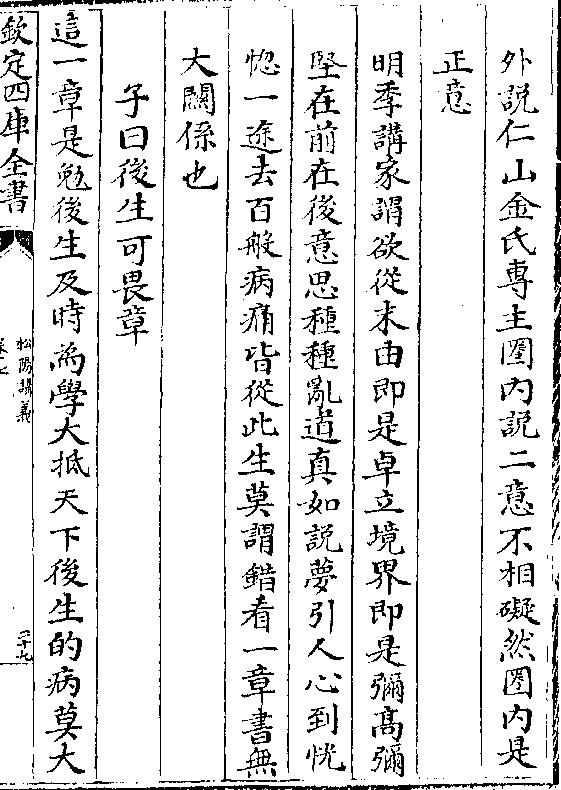 外說仁山金氏專主圏内說二意不相礙然圏内是
正意
明季講家謂欲從末由即是卓立境界即是彌髙彌
堅在前在後意思種種亂道真如說夢引人心到恍
惚一途去百般病痛皆從此生莫謂錯看一章書無
大闗係也
子曰後生可畏章
這一章是勉後生及時為學大抵天下後生的病莫大
欽定四庫全書
松陽講義
卷七
二十七